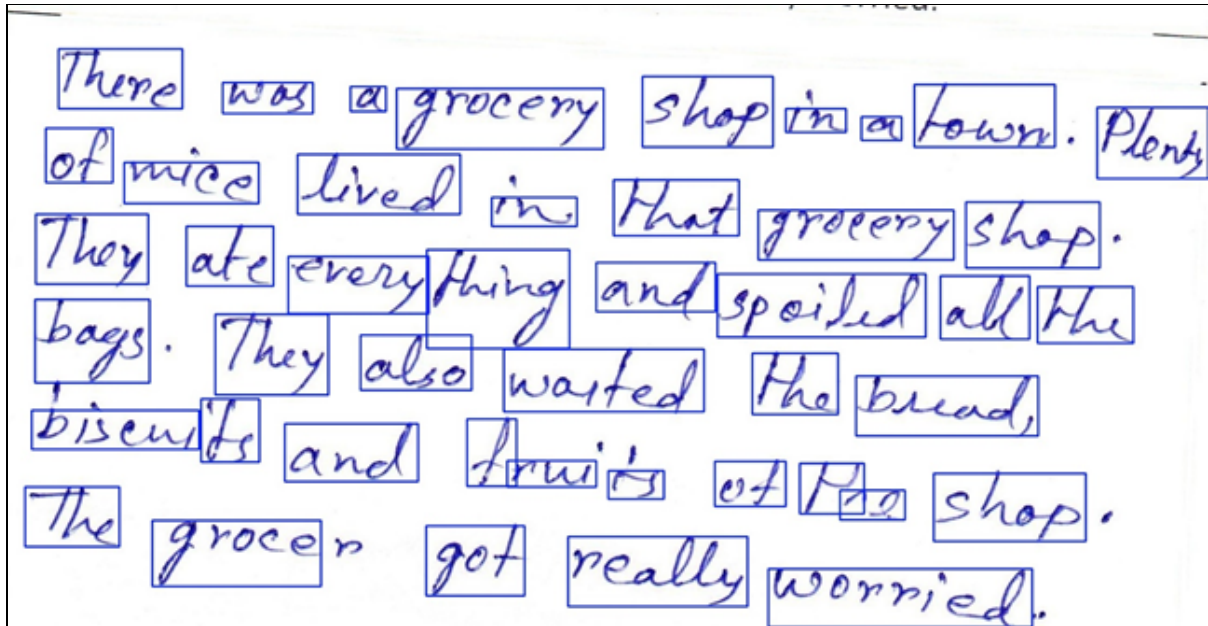 There was a grocery shop in a town. Plenty
of mice lived in that grocery shop.
They ate every thing and spoiled all the
bags. They also wasted the bread,
biscuits and fruits of the shop.
The grocer got really worried.